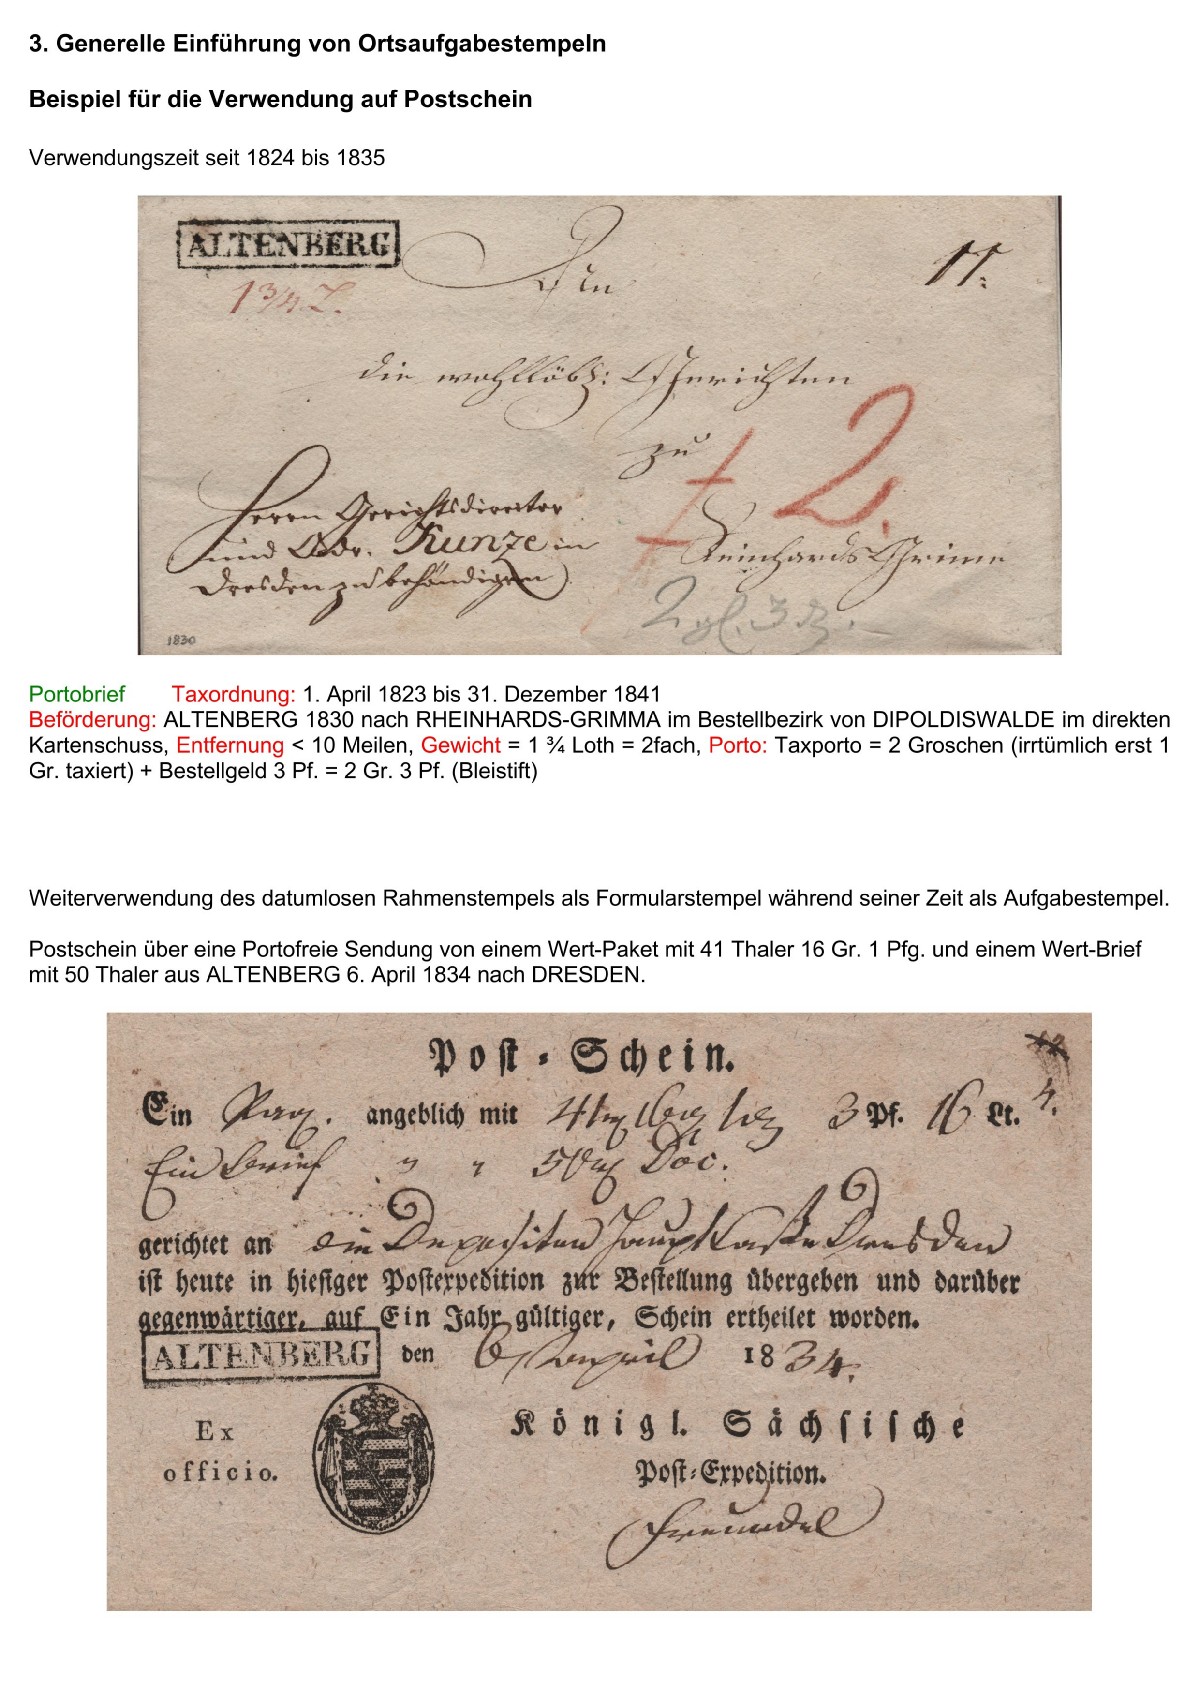 3. Generelle Einführung von Ortsaufgabestempeln
Beispiel für die Verwendung auf Postschein
Verwendungszeit seit 1824 bis 1835
ALTENBERG
1 3/4 L.
An
die wohllöbl: Gerichten
zu
2.
Herrn Gerichtsdirector
und Adv. Kunze in
Dresden zu behändigen)
Reinhards Grimme
2 gl. 3 ₰.
1830
Portobrief Taxordnung: 1. April 1823 bis 31. Dezember 1841
Beförderung: ALTENBERG 1830 nach RHEINHARDS-GRIMMA im Bestellbezirk von DIPOLDISWALDE im direkten
Kartenschuss, Entfernung < 10 Meilen, Gewicht = 1 ¾ Loth = 2fach, Porto: Taxporto = 2 Groschen (irrtümlich erst 1
Gr. taxiert) + Bestellgeld 3 Pf. = 2 Gr. 3 Pf. (Bleistift)
Weiterverwendung des datumlosen Rahmenstempels als Formularstempel während seiner Zeit als Aufgabestempel.
Postschein über eine Portofreie Sendung von einem Wert-Paket mit 41 Thaler 16 Gr. 1 Pfg. und einem Wert-Brief
mit 50 Thaler aus ALTENBERG 6. April 1834 nach DRESDEN.
Post-Schein.
Ein Paq. angeblich mit 3 Pf. 16 Lt. 4.
Ein Brief " " Doc.
gerichtet an die Depositen Haupt Casse Dresden
ist heute in hiesiger Postexpedition zur Bestellung übergeben und darüber
gegenwärtiger, auf Ein Jahr gültiger, Schein ertheilet worden.
ALTENBERG den 6 April 1834.
Ex
officio.
Königl. Sächsische
Post-Expedition.